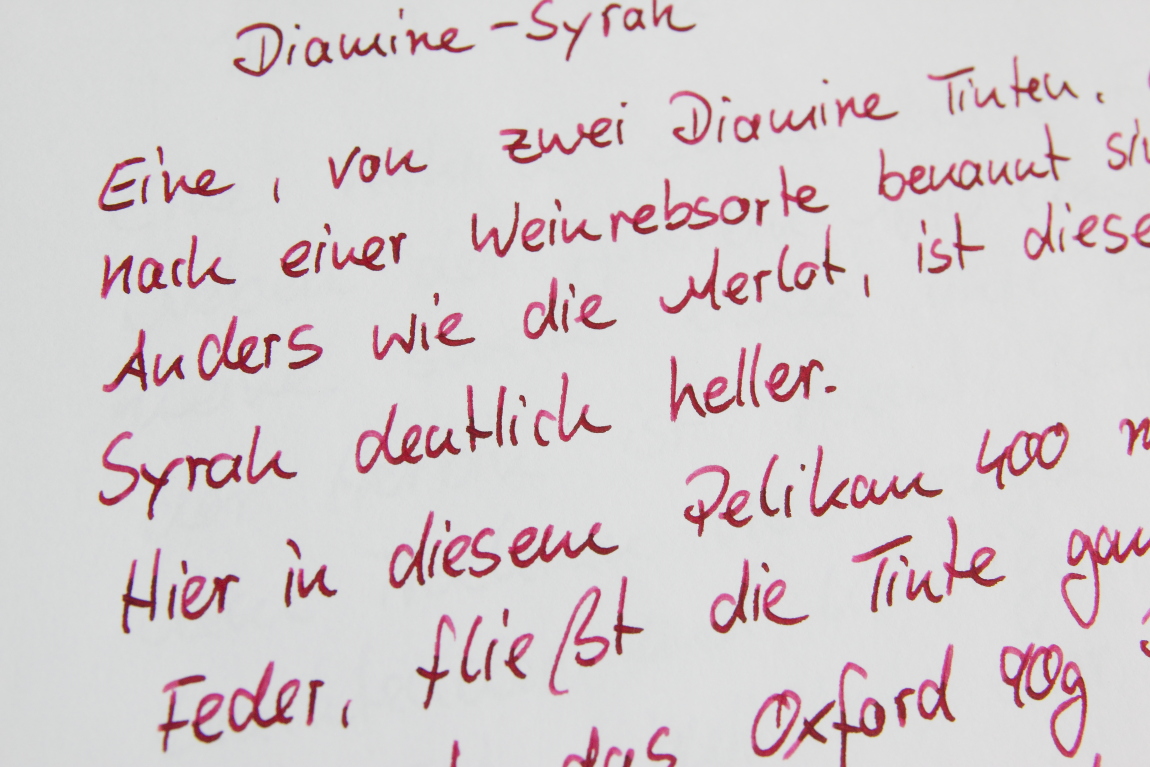 Diamine - Syrah
Eine, von zwei Diamine Tinten.
nach einer Weinrebsorte benannt
Anders wie die Merlot, ist diese
Syrah deutlich heller.
Hier in diesem Pelikan 400
Feder, fließt die Tinte
das Oxford 90g